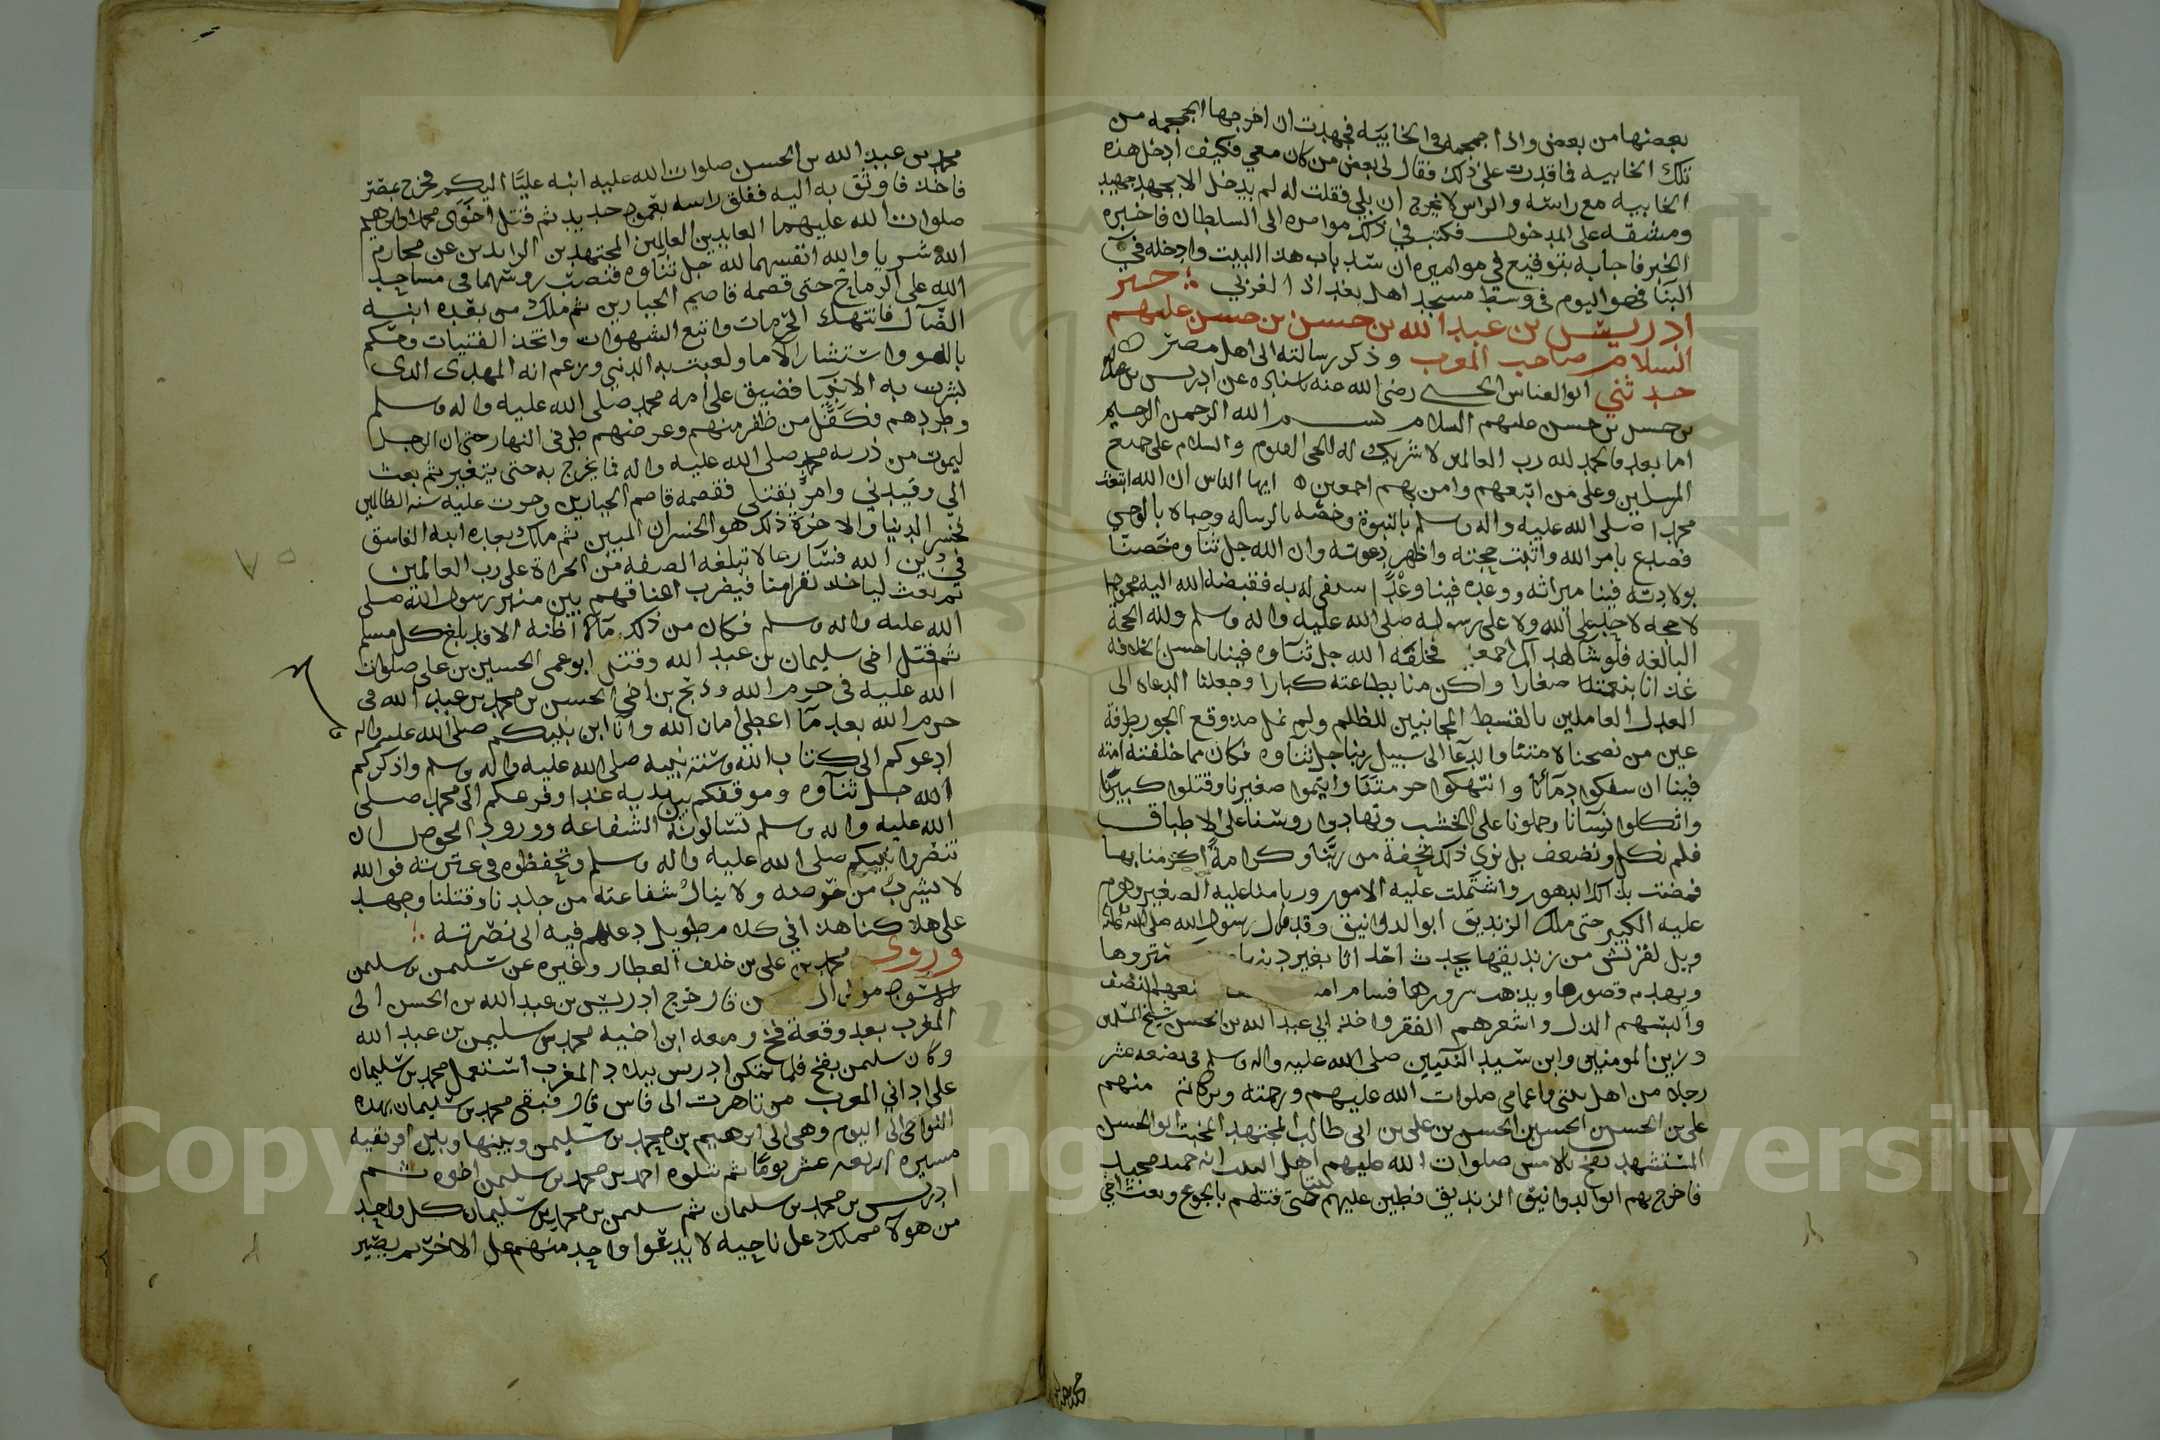 بعضها من بعض واذا جمجمة في الخابية فجهدت ان اخرجها الجمجمة من
تلك الخابيه فما قدرت على ذلك فقال لي بعض من كان معي فكيف ادخل هذه
الخابيه مع راسه والراس لا يخرج ان بلي فقلت له لم يدخل الا بجهد جهيد
ومشقه على المدخول فكتب في ذلك موامره الى السلطان فاخبره
الخبر فاجابه بتوقيع في موامره ان سد باب هذا البيت وادخله في
البنا فهو اليوم في وسط مسجد اهل بغداد الغربي خبر
ادريس بن عبد الله بن حسن بن حسن عليهم
السلام صاحب المغرب وذكر رسالته الى اهل مصر
حدثني ابو العباس الحسني رضي الله عنه باسناده عن ادريس بن عبدالله
بن حسن بن حسن عليهم السلام بسم الله الرحمن الرحيم
اما بعد فالحمد لله رب العالمين لا شريك له الحي القيوم والسلام على جميع
المرسلين وعلى من اتبعهم وامن بهم اجمعين ايها الناس ان الله ابتعث
محمدا صلى الله عليه واله وسلم بالنبوة وخصه بالرساله وحباه بالوحي
فصدع بامر الله واثبت حجته واظهر دعوته وان الله جل ثناوه خصنا
بولادته فينا ميراثه ووعده فينا وعدا سيفي له به فقبضه الله اليه محمودا
لا حجه لاحد على الله ولا على رسوله صلى الله عليه واله وسلم ولله الحجة
البالغه فلو شا لهداكم اجمعين فخلفه الله جل ثناوه فينا باحسن الخلافه
غذانا بنعمته صغارا واكرمنا بطاعته كبارا وجعلنا الدعاه الى
العدل العاملين بالقسط المجانبين للظلم ولم نمل مذ وقع الجور طرفة
عين من نصحنا لامتنا والدعا الى سبيل ربنا جل ثناوه فكان مما خلفته امته
فينا ان سفكوا دمآئنا وانتهكوا حرمتنا وايتموا صغيرنا وقتلوا كبيرنا
واثكلوا نسآنا وحملونا على الخشب وتهادوا روسنا على الاطباق
فلم نكل ونضعف بل نرى ذلك تحفة من ربنا وكرامةً اكرمنا بها
فمضت بذلك الدهور واشتملت عليه الامور وربا منا عليه الصغير وهرم
عليه الكبير حتى ملك الزنديق ابو الدوانيق وقد قال رسول الله صلى الله عليه
ويل لقريش من زنديقها يحدث احداثا يغير دينها ويهتك ستورها
ويهدم قصورها ويذهب سرورها فسام امتنا
والبسهم الذل واشعرهم الفقر واخذ ابي عبد الله بن الحسن شيخ المسلمين
وزين المومنين وابن سيد النبيين صلى الله عليه واله وسلم في بضعه عشر
رجلا من اهل بيتي واعمامي صلوات الله عليهم ورحمته وبركاته منهم
علي بن الحسن بن الحسن بن الحسن بن علي بن ابي طالب المجتهد المخبت ابو الحسن
المستشهد بفخ بالامس صلوات الله عليهم اهل البيت انه حميد مجيد
فاخرج بهم ابو الدوانيق الزنديق فطين عليهم حتى قتلهم بالجوع وبعث اخي
محمد بن عبد الله بن الحسن صلوات الله عليه ابنه عليًا اليكم فخرج بمصر
فاخذ فاوثق به اليه ففلق راسه بعمود حديد ثم قتل اخوَي محمدا وابرهيم
صلوات الله عليهما العابدين العالمين المجتهدين الزايدين عن محارم
الله شريا والله انفسهما لله جل ثناوه فنصب روسهما في مساجد
الله على الرماح حتى قصمه قاصم الجبارين ثم ملك من بعده ابنه
الضآل فانتهك الحرمات واتبع الشهوات واتخذ الفتيات وحكم
بالهوى واستشار الاما ولعبت به الدنيا وزعم انه المهدي الذي
بشرت به الانبيا فضيق على امه محمد صلى الله عليه واله وسلم
وطردهم وكفل من ظفر منهم وعرضهم طرفي النهار حتى ان الرجل
ليموت من ذريه محمد صلى الله عليه واله فما يخرج به حتى يتغير ثم بعث
الي وقيدني وامر بقتلي فقصمه قاصم الجبارين وجرت عليه سنة الظالمين
فخسر الدنيا والاخرة ذلك هو الخسران المبين ثم ملك بعده ابنه الفاسق
في دين الله فسار بما لا تبلغه الصفه من الجراة على رب العالمين
ثم بعث لياخذ نفرا منا فيضرب اعناقهم بين منبر رسول الله صلى
الله عليه واله وسلم فكان من ذلك ما لا اظنه الا قد بلغ كل مسلم
ثم قتل اخي سليمان بن عبد الله وقتل ابو عمي الحسين بن علي صلوات
الله عليه في حرم الله وذبح بن اخي الحسن بن محمد بن عبد الله في
حرم الله بعد مآ اعطي امان الله وانا ابن نبيكم صلى الله عليه واله
ادعوكم الى كتاب الله وسنة نبيه صلى الله عليه واله وسلم واذكركم
الله جل ثنآوه وموقفكم بين يديه غدا وفزعكم الى محمد صلى
الله عليه واله وسلم تسالونه الشفاعه وورود الحوض ان
تنصروا نبيكم صلى الله عليه واله وسلم وتحفظوه في عترته فوالله
لا يشرب من حوضه ولا ينال شفاعته من جلدنا وقتلنا وجهد
على هلاكنا هذا في كلام طويل دعاهم فيه الى نصرته
وروى محمد بن علي بن خلف العطار وغيره عن سليمن بن سليمن
الاسود مولى ال حسن قال خرج ادريس بن عبد الله بن الحسن الى
المغرب بعد وقعة فخ ومعه ابن اخيه محمد بن سليمن بن عبد الله
وكان سليمن بفخ فلما تمكن ادريس ببلاد المغرب استعمل محمد بن سليمان
على اداني المغرب من تاهرت الى فاس قال فبقي محمد بن سليمان بهذه
النواحي الى اليوم وهي الى ابرهيم بن محمد بن سليمن وبينها وبين افريقيه
مسيرة اربعه عشر يومًا ثم تتلوه احمد بن محمد بن سليمن اخوه ثم
ادريس بن محمد بن سليمان ثم سليمن بن محمد بن سليمان كل واحد
من هولا مملك على ناحيه لا يدعوا واحد منهم على الاخر ثم يصير
Copyright © King Saud University